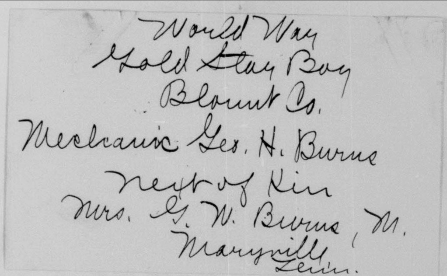 World War
Gold Star Boy
Blount Co.
Mechanic Geo. H. Burns
Next of Kin
Mrs. G. W. Burns, M.
Maryville,
Tenn.